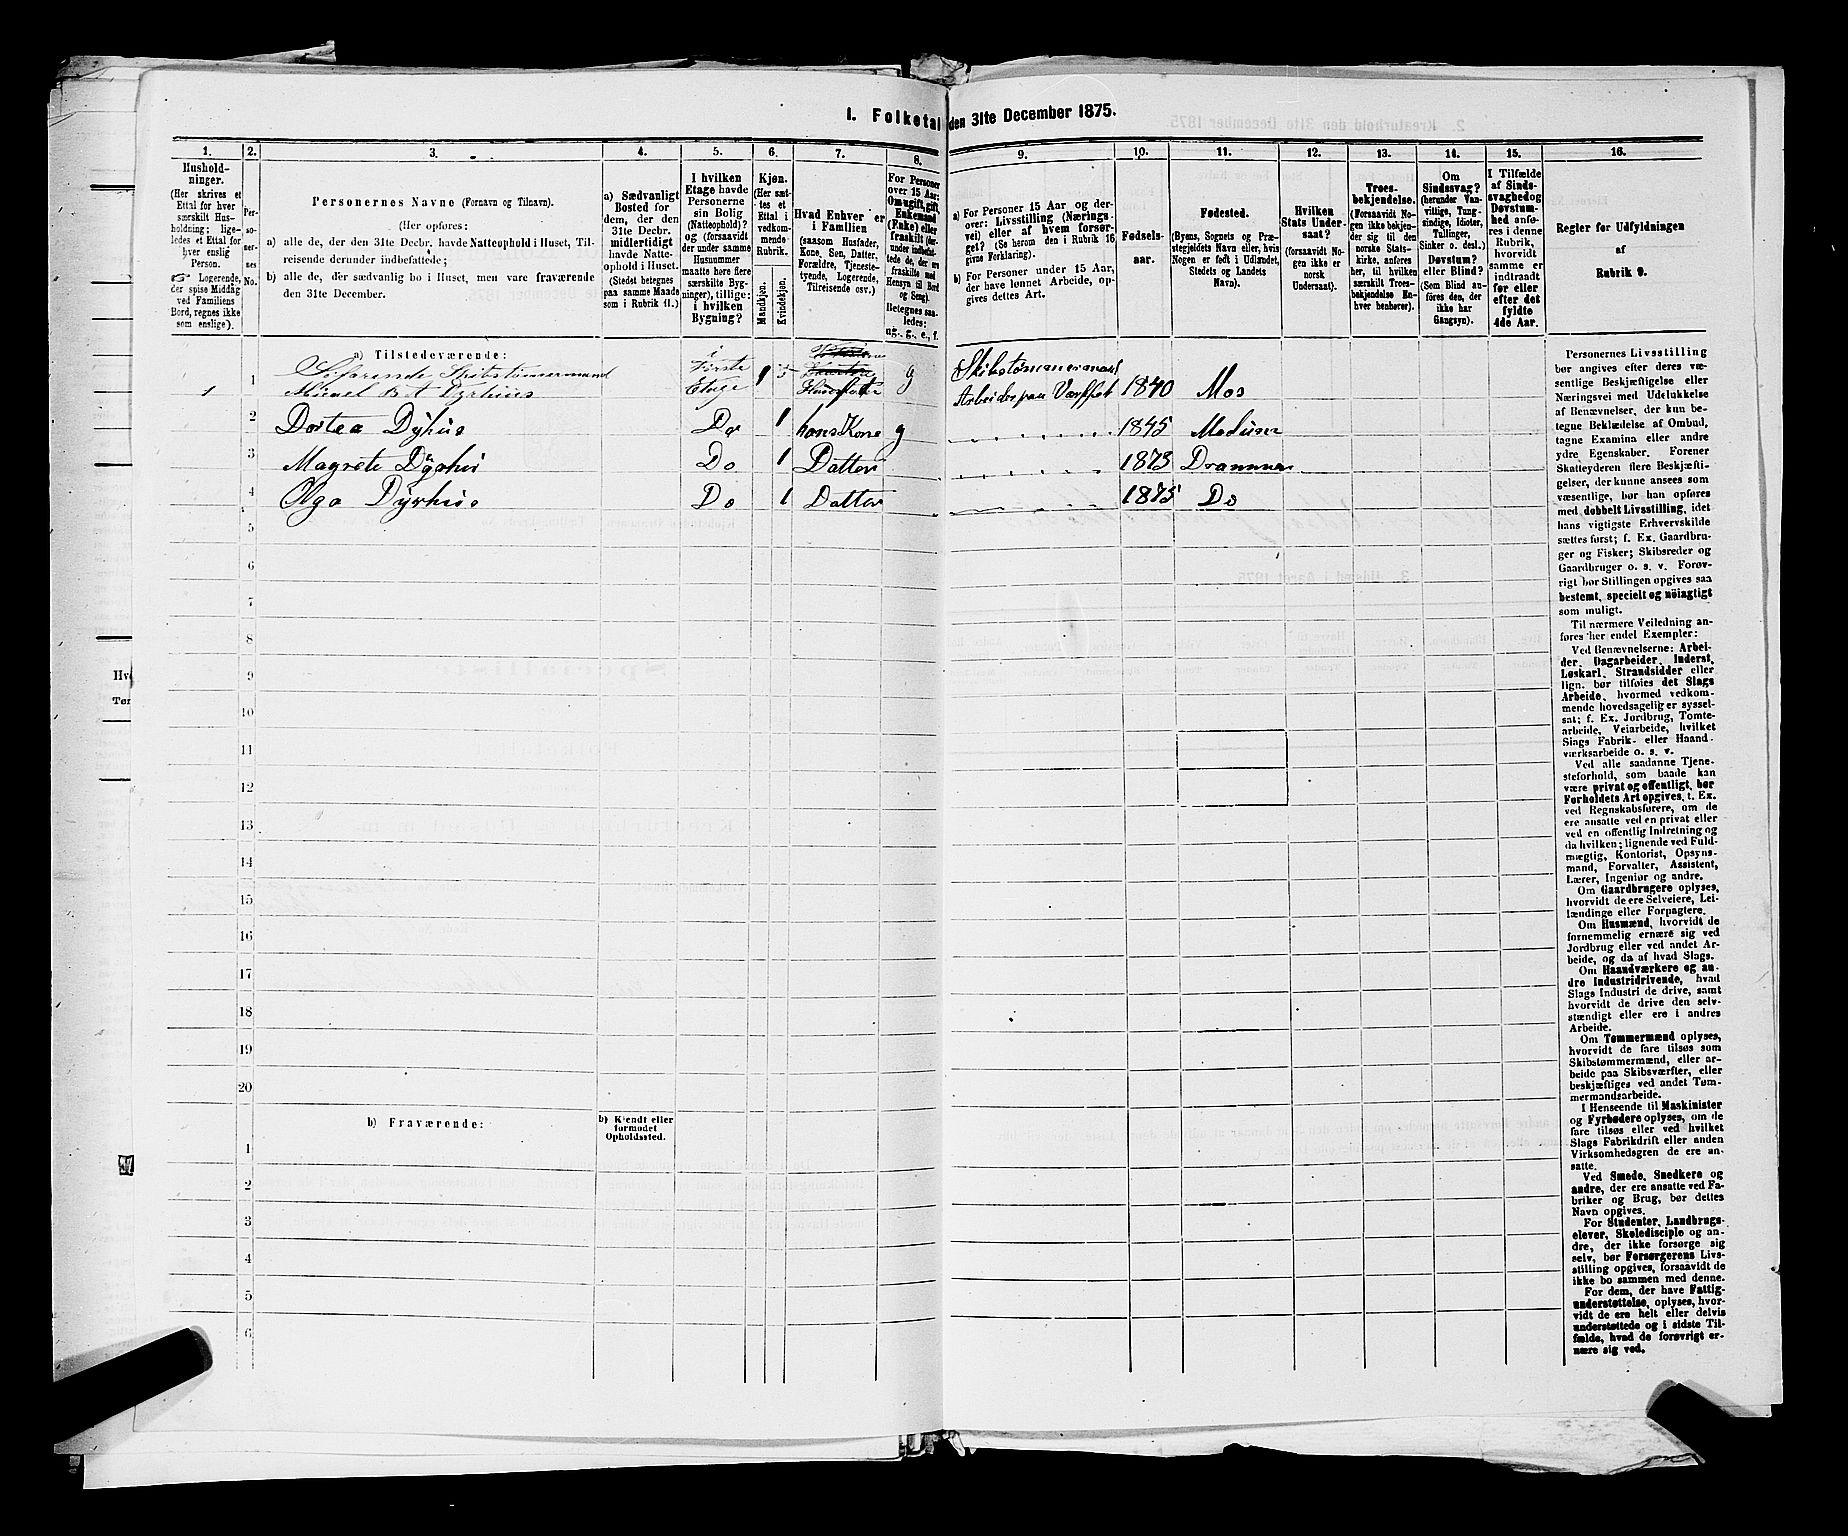 I. Folketal den 31te December 1875.
1.
2.
3.
4.
5.
6.
7.
8.
9.
10.
11.
12.
13.
14.
15.
16.
Hushold-
ninger.
(Her skrives et
Ettal for hver
særskilt Hus-
holdning; lige-
ledes et Ettal for
hver enslig
Person.
☞ Logerende,
der spise Middag
ved Familiens
Bord, regnes ikke
som enslige).
Per-
so-
ner-
nes
No.
Personernes Navne (Fornavn og Tilnavn).
(Her opføres:
a) alle de, der den 31te Decbr. havde Natteophold i Huset, Til-
reisende derunder indbefattede;
b) alle de, der sædvanlig bo i Huset, men vare fraværende
den 31te December.
a) Sædvanligt
Bosted for
dem, der den
31te Decbr.
midlertidigt
havde Natte-
ophold i Huset.
(Stedet betegnes
paa samme Maade
som i Rubrik 11.)
I hvilken
Etage havde
Personerne
sin Bolig
(Natteophold)?
og (forsaavidt
der under samme
Husnummer
maatte høre flere
særskilte Byg-
ninger), tillige:
i hvilken
Bygning?
Kjøn.
(Her sæt-
tes et
Ettal i
vedkom-
mende
Rubrik.
Mandkjøn.
Kvindekjøn.
Hvad Enhver er
i Familien
(saasom Husfader,
Kone, Søn, Datter,
Forældre, Tjeneste-
tyende, Logerende,
Tilreisende osv.)
For Personer
over 15 Aar:
Om ugift, gift,
Enkemand
(Enke) eller
fraskilt (der-
under indbefat-
tede de, der ere
fraskilte med
Hensyn til Bord
og Seng).
Betegnes saa-
ledes:
ug., g., e., f.
a) For Personer 15 Aar og der-
over: Livsstilling (Nærings-
vei) eller af hvem forsør-
get? (Se herom den i Rubrik 16
givne Forklaring).
b) For Personer under 15 Aar,
der have lønnet Arbeide, op-
gives dettes Art.
Fødsels-
aar.
Fødested.
(Byens, Sognets og Præ-
stegjeldets Navn eller, hvis
Nogen er født i Udlandet,
Stedets og Landets
Navn).
Hvilken
Stats Under-
saat?
(forsaavidt No-
gen ikke er
norsk
Undersaat).
Troes-
bekjendelse.
(Forsaavidt No-
gen ikke bekjen-
der sig til den
norske Stats-
kirke, anføres
her, til hvilken
særskilt Troes-
bekjendelse En-
hver henhører).
Om
Sindssvag?
(herunder Van-
vittige, Tung-
sindige, Idioter,
Tullinger,
Sinker o. desl.)
Døvstum?
eller Blind?
(Som Blind an-
føres den, der
ikke har
Gangsyn).
I Tilfælde
af Sinds-
svaghed og
Døvstum-
hed anfø-
res i denne
Rubrik,
hvorvidt
samme er
indtraadt
før eller
efter det
fyldte
4de Aar.
Regler for Udfyldningen
af
Rubrik 9.
a) Tilstedeværende:
1 1 Søfarende Skibstømmermand i Første Etage 1 5 g Skibstømmermand
Arbeider paa Værftet 1840 Mos
2 Dortea Dyhus Do 1 hans Kone g 1845 Modum
3 Magrete Dyrhus Do 1 Datter 1873 Drammen
4 Olga Dyrhus Do 1 Datter 1875 Do
5
6
7
8
9
10
11
12
13
14
15
16
17
18
19
20
b) Fraværende:
b) Kjendt eller
formodet
Opholdssted.
1
2
3
4
5
6
Personernes Livsstilling
bør angives efter deres væ-
sentlige Beskjæftigelse eller
Næringsvei med Udelukkelse
af Benævnelser, der kun be-
tegne Beklædelse af Ombud,
tagne Examina eller andre
ydre Egenskaber. Forener
Skatteyderen flere Beskjæfti-
gelser, der kunne ansees som
væsentlige, bør han opføres
med dobbelt Livsstilling, idet
hans vigtigste Erhvervskilde
sættes først; f. Ex. Gaardbru-
ger og Fisker; Skibsreder og
Gaardbruger o. s. v. Forøv-
rigt bør Stillingen opgives saa
bestemt, specielt og nöiagtigt
som muligt.
Til nærmere Veiledning an-
føres her endel Exempler:
Ved Benævnelserne: Arbei-
der, Dagarbeider, Inderst,
Løskarl, Strandsidder eller
lign. bør tilføies det Slags
Arbeide, hvormed vedkom-
mende hovedsagelig er syssel-
sat; f. Ex. Jordbrug, Tomte-
arbeide, Veiarbeide, hvilket
Slags Fabrik- eller Haand-
værksarbeide o. s. v.
Ved alle saadanne Tjene-
steforhold, som baade kan
være privat og offentligt, bør
Forholdets Art opgives, f. Ex.
ved Regnskabsførere, om de
ere ansatte ved en privat eller
ved en offentlig Indretning og
da hvilken; lignende ved Fuld-
mægtig, Kontorist, Opsyns-
mand, Forvalter, Assistent,
Lærer, Ingeniør og andre.
Om Gaardbrugere oplyses,
hvorvidt de ere Selveiere, Lei-
lændinge eller Forpagtere.
Om Husmænd, hvorvidt de
fornemmelig ernære sig ved
Jordbrug eller ved andet Ar-
beide, og da af hvad Slags.
Om Haandværkere og an-
dre Industridrivende, hvad
Slags Industri de drive, samt
hvorvidt de drive den selv-
stændigt eller ere i andres
Arbeide.
Om Tømmermænd oplyses,
hvorvidt de fare tilsøs som
Skibstømmermænd, eller ar-
beide paa Skibsværfter, eller
beskjæftiges ved andet Tøm-
mermandsarbeide.
I Henseende til Maskinister
og Fyrbødere oplyses, om de
fare tilsøs eller ved hvilket
Slags Fabrikdrift eller anden
Virksomhedsgren de ere an-
satte.
Ved Smede, Snedkere og
andre, der ere ansatte ved Fa-
briker og Brug, bør dettes
Navn opgives.
For Studenter, Landbrugs-
elever, Skoledisciple og an-
dre, der ikke forsørge sig
selv, bør Forsørgerens Livs-
stilling opgives, forsaavidt de
ikke bo sammen med denne.
For dem, der have Fattig-
understøttelse, oplyses, hvor-
vidt de ere helt eller delvis
understøttede og i sidste Til-
fælde, hvad de forøvrigt er-
nære sig ved.